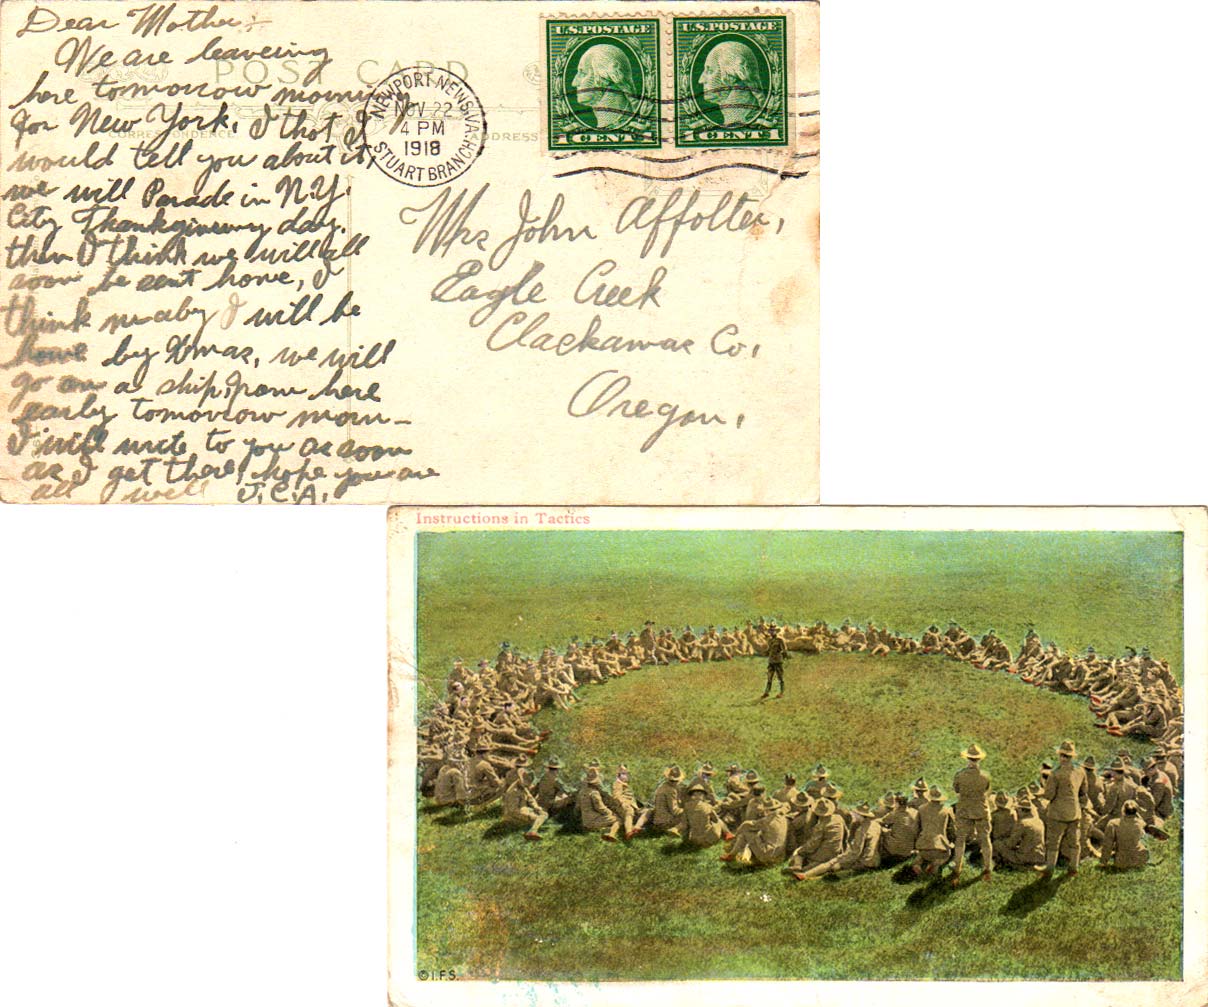 Dear Mother:
We are leaveing
here tomorrow morning
for New York. I thot I
would tell you about it,
we will Parade in N.Y.
City Thanksgiveing day.
then I think we will all
soon be sent home, I
think maby I will be
home by Xmas, we will
go on a ship, from here
early tomorrow morn–
I will write to you as soon
as I get there, hope you are
all well J.C.A.
POST CARD
CORRESPONDENCE
ADDRESS
NEWPORT NEWS, VA.
NOV 22
4 PM
1918
STUART BRANCH
U.S. POSTAGE
1 CENT 1
U.S. POSTAGE
1 CENT 1
Mrs John Affolter,
Eagle Creek
Clackamas Co,
Oregon,
Instructions in Tactics
© I.F.S.